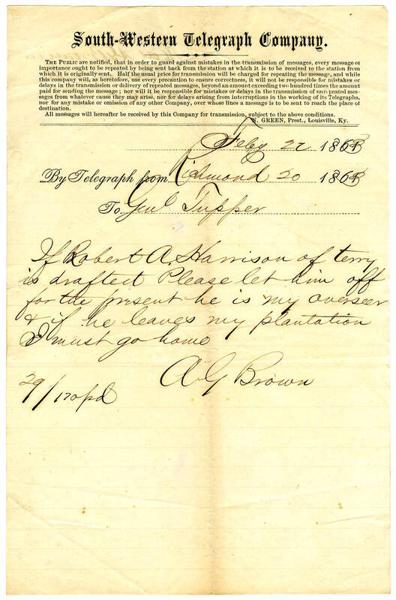 South-Western Telegraph Company.
THE PUBLIC are notified, that in order to guard against mistakes in the transmission of messages, every message of
importance ought to be repeated by being sent back from the station at which it is to be received to the station from
which it is originally sent. Half the usual price for transmission will be charged for repeating the message, and while
this company will, as heretofore, use every precaution to ensure correctness, it will not be responsible for mistakes or
delays in the transmission or delivery of repeated messages, beyond an amount exceeding two hundred times the amount
paid for sending the message; nor will it be responsible for mistakes or delays in the transmission of unrepeated mes-
sages from whatever cause they may arise, nor for delays arising from interruptions in the working of its Telegraphs,
nor for any mistake or omission of any other Company, over whose lines a message is to be sent to reach the place of
destination.
All messages will hereafter be received by this Company for transmission, subject to the above conditions.
N. GREEN, Prest., Louisville, Ky.
Feby 22 1863
By Telegraph from Richmond 20 1863
To Genl Tupper
If Robert A. Harrison of terry
is drafted Please let him off
for the present he is my overseer
& if he leaves my plantation
I must go home
A G Brown
29/170 pd